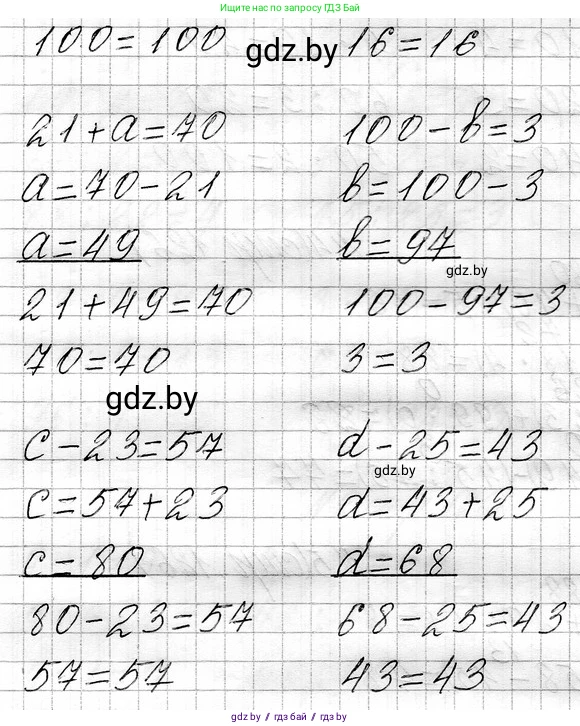 Ищите нас по запросу ГДЗ Бай
100=100
16=16
gdz.by
21+a=70
a=70-21
a=49
21+49=70
70=70
100-b=3
b=100-3
b=97
gdz.by
100-97=3
3=3
gdz.by
c-23=57
c=57+23
c=80
80-23=57
57=57
d-25=43
gdz.by
d=43+25
d=68
68-25=43
43=43
gdz by / гдз бай / gdz.by